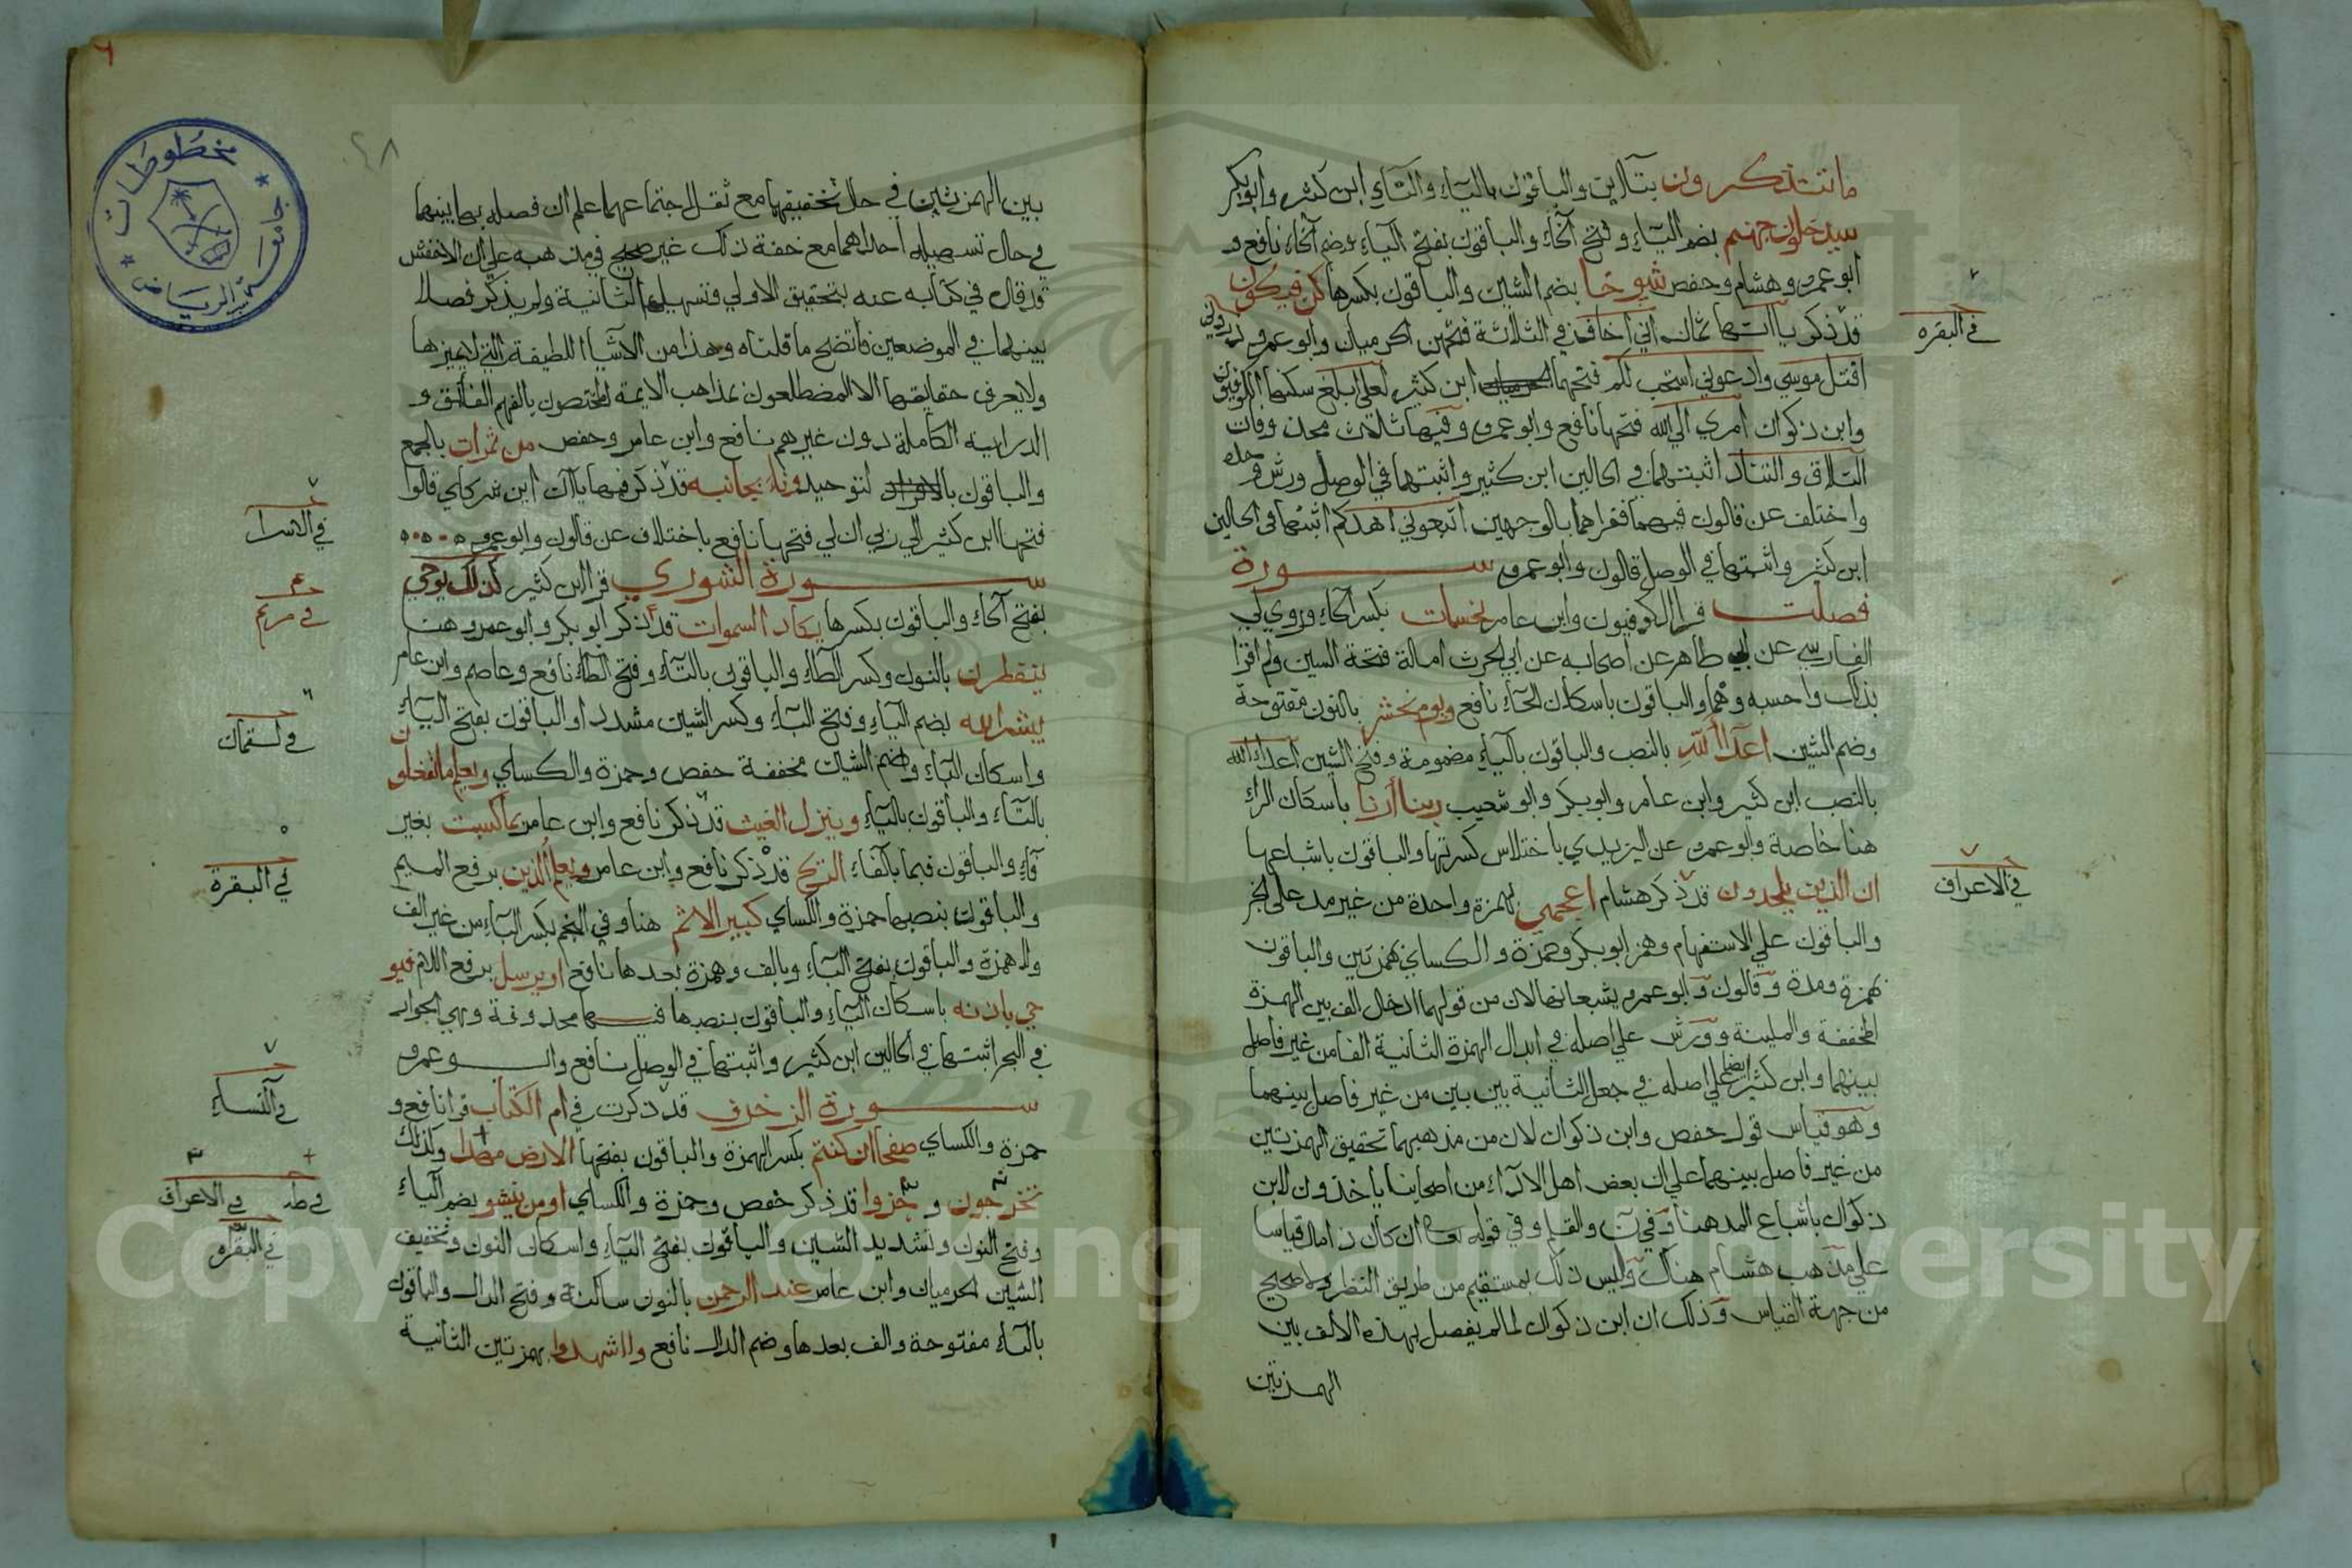 ما تتذكرون بتائين والباقون بالياء والتاء ابن كثير وابو بكر
سيدخلون جهنم بضم الياء وفتح الخاء والباقون بفتح الياء وضم الخاء نافع و
ابو عمرو وهشام وحفص شيوخا بضم الشين والباقون بكسرها كن فيكون
قد ذكر ياآتها ثمان اني اخاف في الثلاثة فتحهن الحرميان وابو عمرو ذروني
اقتل موسى وادعوني استجب لكم فتحهما ابن كثير لعلي ابلغ سكنها الكوفيون
وابن ذكوان امري الى الله فتحها نافع وابو عمرو وفيها ثلاث محذوفات
التلاق والتناد اثبتهما في الحالين ابن كثير واثبتهما في الوصل ورش وحده
واختلف عن قالون فيهما فقراهما بالوجهين اتبعوني اهدكم اثبتها في الحالين
ابن كثير واثبتها في الوصل قالون وابو عمرو سورة
فصلت قرا الكوفيون وابن عامر نحسات بكسر الحاء وروى لي
الفارسي عن ابي طاهر عن اصحابه عن ابي الحرث امالة فتحة السين ولم اقرا
بذلك واحسبه وهما والباقون باسكان الحاء نافع ويوم نحشر بالنون مفتوحة
وضم الشين اعداء الله بالنصب والباقون بالياء مضمومة وفتح الشين اعداء الله
بالنصب ابن كثير وابن عامر وابو بكر وابو شعيب ربنا أرنا باسكان الراء
هنا خاصة وابو عمرو عن اليزيدي باختلاس كسرتها والباقون باشباعها
ان الذين يلحدون قد ذكر هشام اعجمي بهمزة واحدة من غير مد على الخبر
والباقون على الاستفهام وهمز ابو بكر وحمزة والكسائي بهمزتين والباقون
بهمزة ومدة وقالون وابو عمرو يشبعانها لان من قولهما ادخال الف بين الهمزة
المخففة والملينة وورش على اصله في ابدال الهمزة الثانية الفا من غير فاصل
بينهما وابن كثير ايضا على اصله في جعل الثانية بين بين من غير فاصل بينهما
وهو قياس قول حفص وابن ذكوان لان من مذهبهما تحقيق الهمزتين
من غير فاصل بينهما على ان بعض اهل الاداء من اصحابنا ياخذون لابن
ذكوان باشباع المد هنا وفي ن والقلم وفي قوله ان كان ذا مال قياسا
على مذهب هشام هناك وليس ذلك بمستقيم من طريق النظر ولا صحيح
من جهة القياس وذلك ان ابن ذكوان لما لم يفصل بهذه الالف بين
الهمزتين
في البقره
في الاعراف
بين الهمزتين في حال تحقيقهما مع ثقل اجتماعهما علم ان فصله بها بينهما
في حال تسهيله احداهما مع خفة ذلك غير صحيح في مذهبه على ان الاخفش
قد قال في كتابه عنه بتحقيق الاولى وتسهيل الثانية ولم يذكر فصلا
بينهما في الموضعين فاتضح ما قلناه وهذا من الاشيا اللطيفة التي لا يميزها
ولا يعرف حقايقها الا المضطلعون بمذاهب الايمة المختصون بالفهم الفائق و
الدراية الكاملة دون غيرهم نافع وابن عامر وحفص من ثمرات بالجمع
والباقون بالتوحيد ونا بجانبه قد ذكر فيها ياآن اين شركاي قالوا
فتحها ابن كثير الى ربي ان لي فتحها نافع باختلاف عن قالون وابو عمرو
سورة الشوري قرا ابن كثير كذلك يوحي
بفتح الحاء والباقون بكسرها يكاد السموات قد ذكر ابو بكر وابو عمرو هنا
ينفطرن بالنون وكسر الطاء والباقون بالتاء وفتح الطاء نافع وعاصم وابن عامر
يبشر الله بضم الياء وفتح الباء وكسر الشين مشددا والباقون بفتح الياء
واسكان الباء وضم الشين مخففة حفص وحمزة والكسائي ويعلم ما تفعلون
بالتاء والباقون بالياء وينزل الغيث قد ذكر نافع وابن عامر بما كسبت بغير
فاء والباقون فبما بالفاء الريح قد ذكر نافع وابن عامر ويعلم الذين برفع الميم
والباقون بنصبها حمزة والكساي كبير الاثم هنا وفي النجم بكسر الباء من غير الف
ولا همزة والباقون بفتح الباء وبالف وهمزة بعدها نافع او يرسل برفع اللام فيو
حي باذنه باسكان الياء والباقون بنصبها فيها محذوفة وهي الجوار
في البحر اثبتها في الحالين ابن كثير واثبتها في الوصل نافع وابو عمرو
سورة الزخرف قد ذكرت في ام الكتاب قرا نافع و
حمزة والكساي صفحا ان كنتم بكسر الهمزة والباقون بفتحها الارض مهدا وكذلك
تخرجون و جزوا قد ذكر حفص وحمزة والكساي او من ينشو بضم الياء
وفتح النون وتشديد الشين والباقون بفتح الياء واسكان النون وتخفيف
الشين الحرميان وابن عامر عند الرحمن بالنون ساكنة وفتح الدال والباقون
بالباء مفتوحة والف بعدها وضم الدال نافع وااشهدوا بهمزتين الثانية
في الاسرا
في مريم
في لقمان
في البقرة
في النساء
في طه في الاعراف
في البقره
٤٨
مخطوطات
جامعة الرياض
Copyright © King Saud University